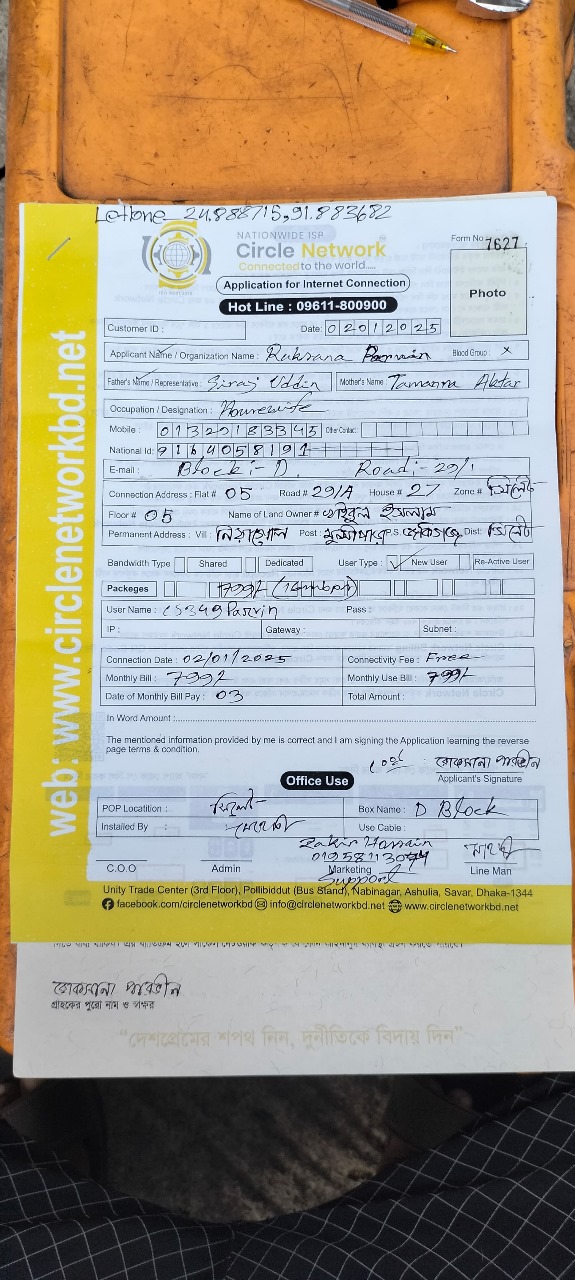 Letlone 24.888715,91.883682
NATIONWIDE ISP
Circle Network
Connected to the world.....
Form No 7627
Application for Internet Connection
Hot Line : 09611-800900
Photo
Customer ID :
Date: 02012025
Applicant Name / Organization Name : Ruksana Parvin Blood Group : x
Father's Name / Representative : Siraj Uddin Mother's Name Tamanna Aktar
Occupation / Designation : Housewife
Mobile : 01320183345 Other Contact :
National Id: 9164058191
E-mail : Block :- D Road :- 29/1
Connection Address : Flat # 05 Road # 29/A House # 27 Zone # সিলেট
Floor # 05 Name of Land Owner # ইসলাম
Permanent Address : Vill : Post : P.S. Dist: সিলেট
Bandwidth Type Shared Dedicated User Type : New User Re-Active User
Packeges 799/-
User Name : CS349Parvin Pass :
IP : Gateway : Subnet :
Connection Date : 02/01/2025 Connectivity Fee : Free
Monthly Bill : 799/- Monthly Use Bill : 799/-
Date of Monthly Bill Pay : 03 Total Amount :
In Word Amount :
The mentioned information provided by me is correct and I am signing the Application learning the reverse
page terms & condition.
রোকসানা পারভীন
Applicant's Signature
Office Use
POP Locatition : সিলেট Box Name : D Block
Installed By : Use Cable :
Zakir Hossain
C.O.O Admin Marketing Line Man
Support
Unity Trade Center (3rd Floor), Pollibiddut (Bus Stand), Nabinagar, Ashulia, Savar, Dhaka-1344
facebook.com/circlenetworkbd info@circlenetworkbd.net www.circlenetworkbd.net
web: www.circlenetworkbd.net
রোকসানা পারভীন
গ্রাহকের পুরো নাম ও সাক্ষর
“দেশপ্রেমের শপথ নিন, দুর্নীতিকে বিদায় দিন”